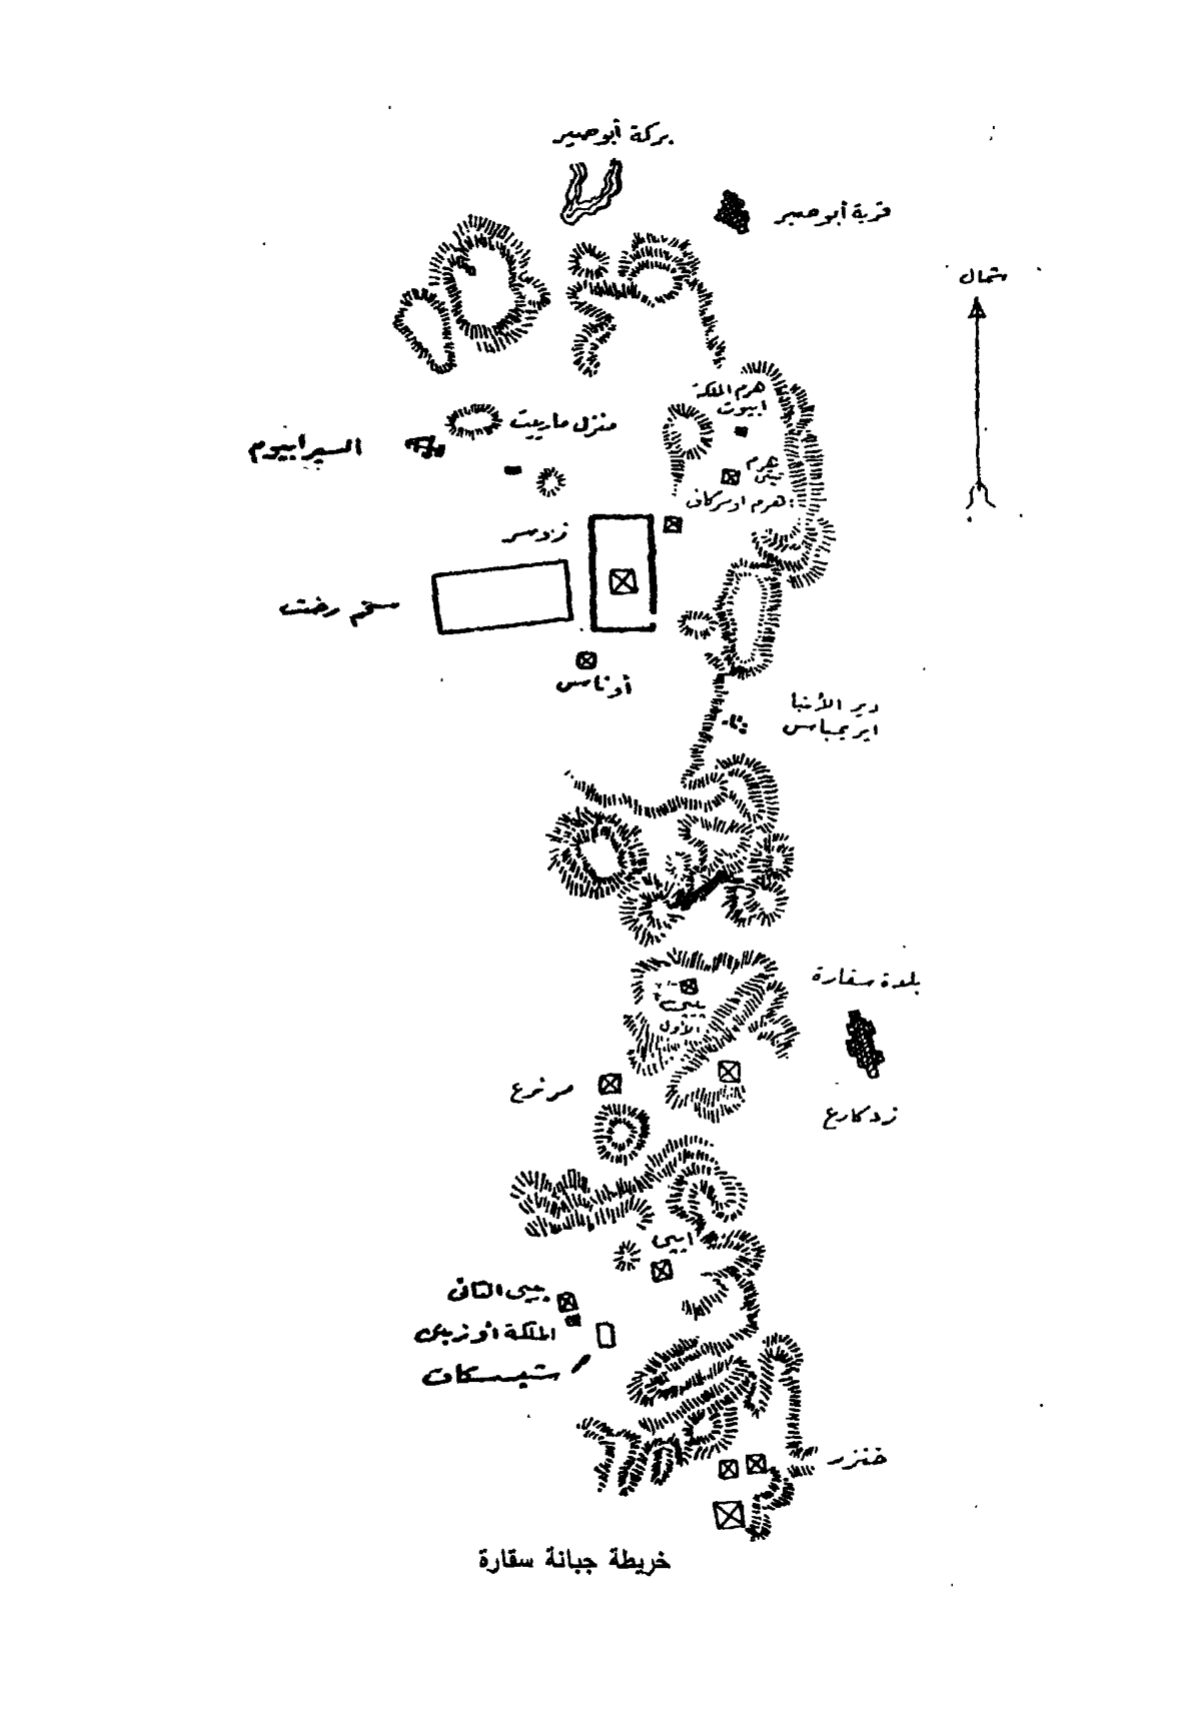 بركة أبوصير
قرية أبوصير
شمال
هرم الملكة
ايبوت
منزل مارييت
السيرابيوم
هرم
تيتى
هرم اوسركاف
زوسر
سخم رخت
أوناس
دير الأنبا
ايريمياس
بلدة سقارة
بيبى
الأول
مرنرع
زد كارع
ايبى
بيبى الثانى
الملكة أوزيبتى
خنزر
خريطة جبانة سقارة